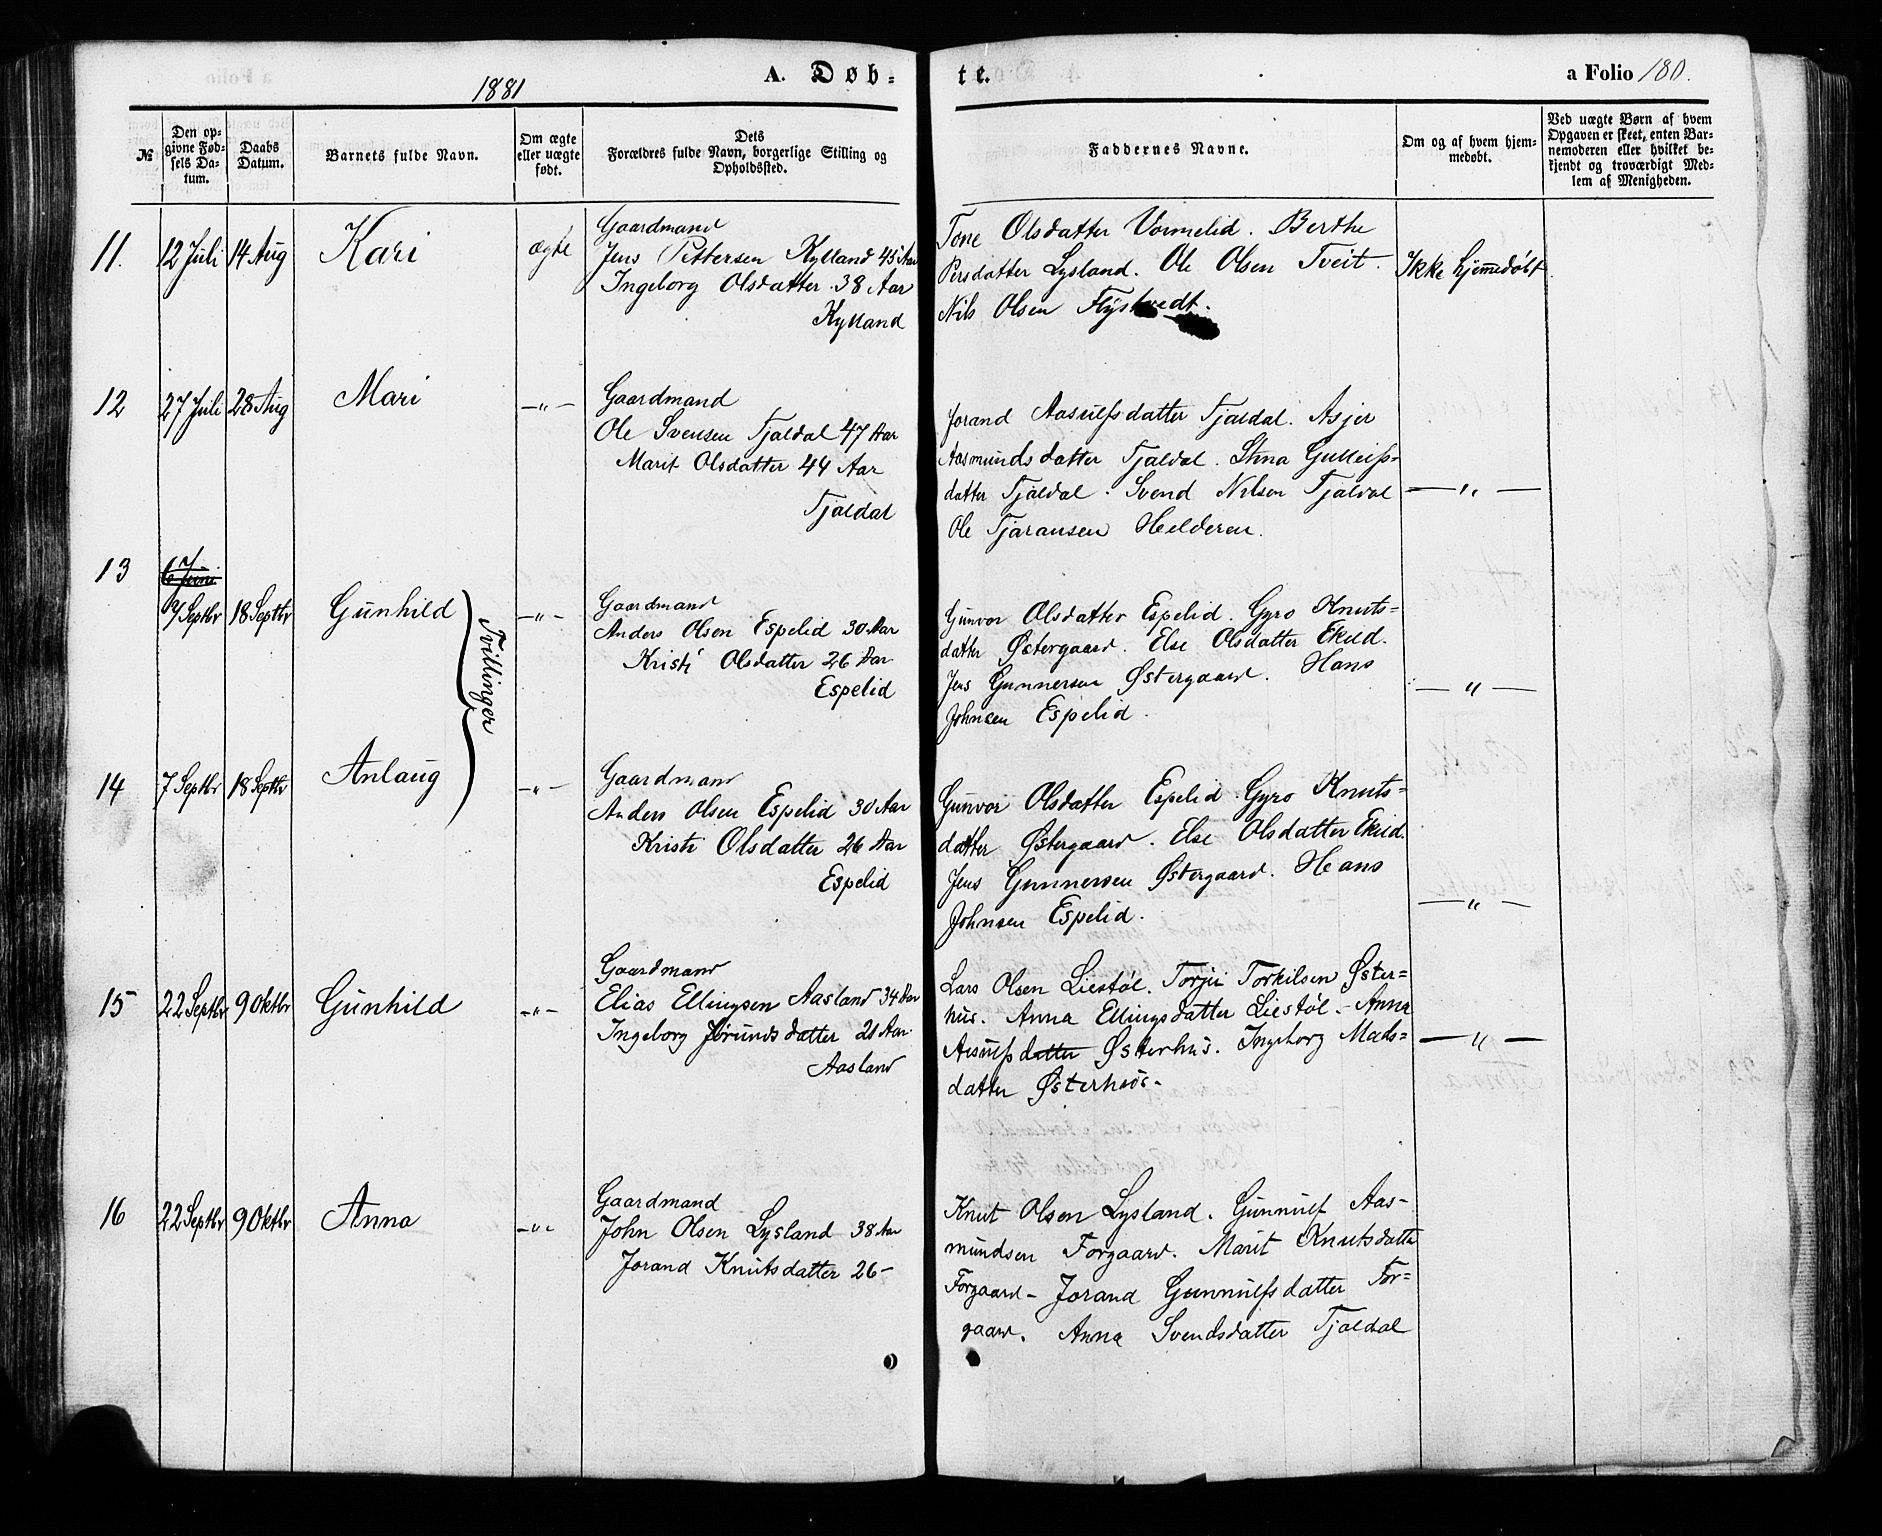 1881
A. Døb=
te.
a Folio 180.
№
Den op-
givne Fød-
sels Da-
tum.
Daabs
Datum.
Barnets fulde Navn.
Om ægte
eller uægte
født.
Dets
Forældres fulde Navn, borgerlige Stilling og
Opholdssted.
Faddernes Navne.
Om og af hvem hjem-
medøbt.
Ved uægte Børn af hvem
Opgaven er skeet, enten Bar-
nemoderen eller hvilket be-
kjendt og troværdigt Med-
lem af Menigheden.
11.
12 Juli
14 Aug
Kari
ægte
Gaardmand
Jens Pettersen Kylland 45 Aar
Ingeborg Olsdatter 38 Aar
Kylland
Tone Olsdatter Vormelid. Berthe
Persdatter Lysland. Ole Olsen Tveit.
Nils Olsen Flystvedt.
Ikke hjemmedøbt
12
27 Juli
28 Aug
Mari
—"—
Gaardmand
Ole Svensen Tjaldal 47 Aar
Marit Olsdatter 44 Aar
Tjaldal
Jorand Aasulfsdatter Tjaldal. Asjer
Aasmundsdatter Tjaldal. Stina Gulleifs=
datter Tjaldal. Svend Nilsen Tjaldal
Ole Tjaransen Helderen.
—"—
13
6 Juni
7 Septbr
18 Septbr
Gunhild
Tvillinger
—"—
Gaardmand
Anders Olsen Espelid 30 Aar
Kristi Olsdatter 26 Aar
Espelid
Gunvor Olsdatter Espelid. Gyro Knuts=
datter Østergaard. Else Olsdatter Ekeld.
Jens Gunnersen Østergaard. Hans
Johnsen Espelid.
—"—
14
7 Septbr
18 Septbr
Anlaug
—"—
Gaardmand
Anders Olsen Espelid 30 Aar
Kristi Olsdatter 26 Aar
Espelid
Gunvor Olsdatter Espelid. Gyro Knuts=
datter Østergaard. Else Olsdatter Ekeld.
Jens Gunnersen Østergaard. Hans
Johnsen Espelid.
—"—
15
22 Septbr
9 Oktbr
Gunhild
—"—
Gaardmand
Elias Ellingsen Aasland 34 Aar
Ingeborg Jørundsdatter 21 Aar.
Aasland
Lars Olsen Liestøl. Torjii Torkilsen Øster=
hus. Anna Ellingsdatter Liestøl. - Anna
Aesulfsdatter Østerhus. Ingeborg Mads=
datter Østerhus -
—"—
16
22 Septbr
9 Oktbr
Anna
—"—
Gaardmand
John Olsen Lysland 38 Aar
Jorand Knutsdatter 26 –
Knut Olsen Lysland. Gunnulf Aas-
mundsen Forgaard. Marit Knutsdatter
Forgaard – Jorand Gunnulfsdatter For=
gaard. Anna Svendsdatter Tjaldal